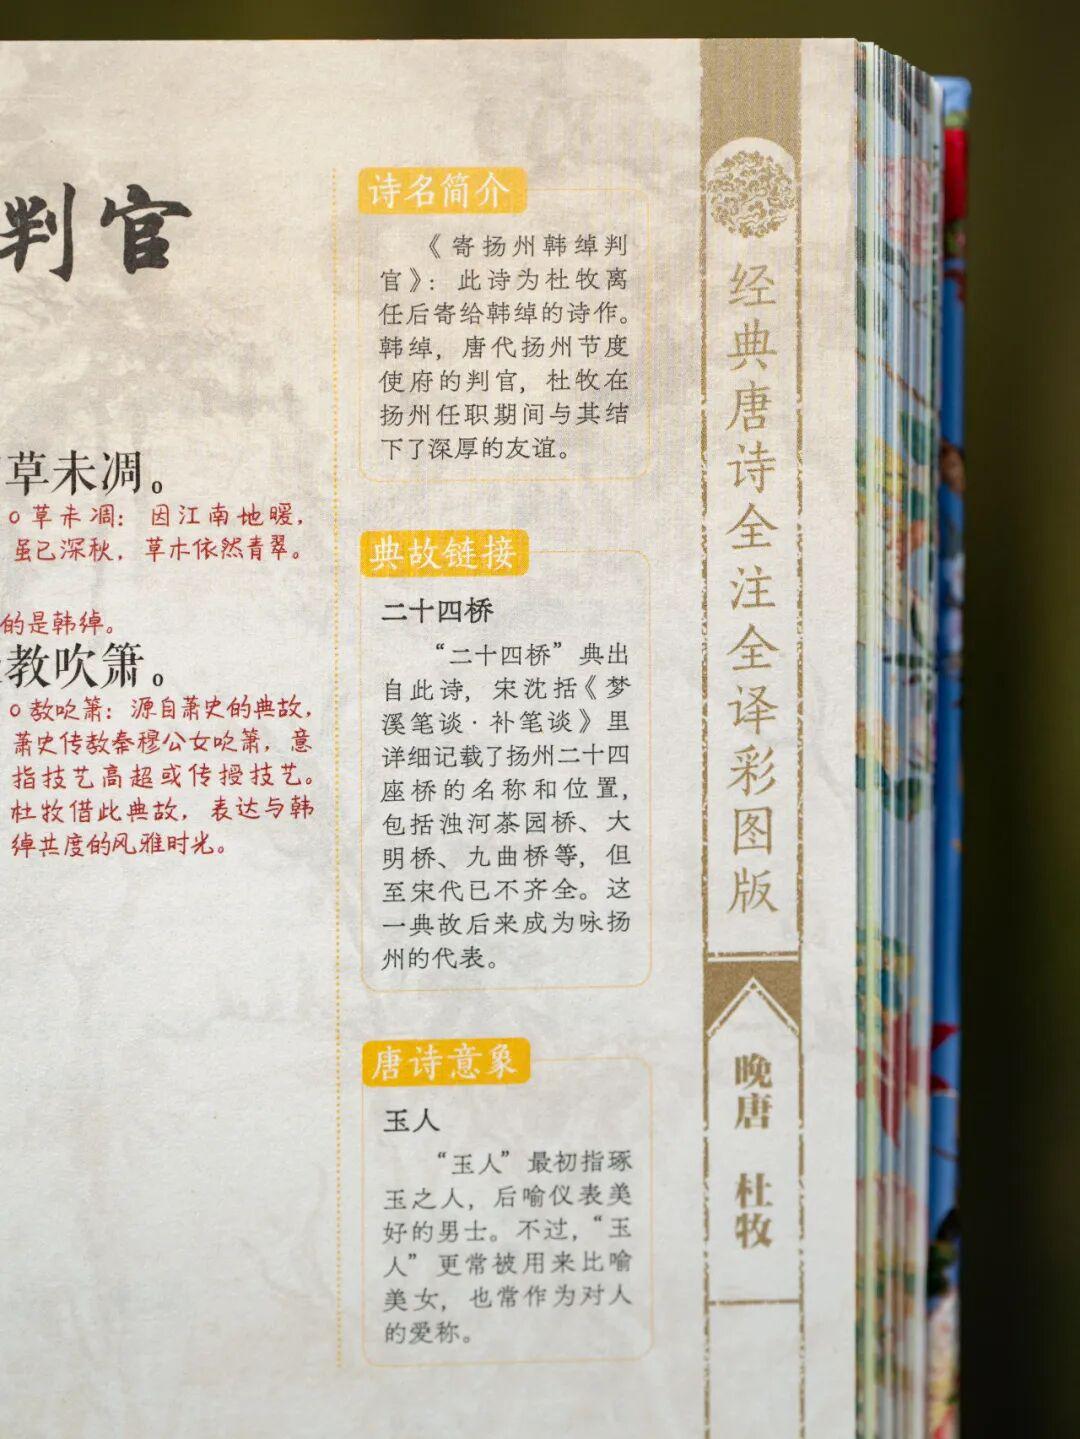 判官
草未凋。
○草未凋：因江南地暖，
虽已深秋，草木依然青翠。
的是韩绰。
教吹箫。
○教吹箫：源自萧史的典故，
萧史传教秦穆公女吹箫，意
指技艺高超或传授技艺。
杜牧借此典故，表达与韩
绰共度的风雅时光。
诗名简介
《寄扬州韩绰判
官》：此诗为杜牧离
任后寄给韩绰的诗作。
韩绰，唐代扬州节度
使府的判官，杜牧在
扬州任职期间与其结
下了深厚的友谊。
典故链接
二十四桥
“二十四桥”典出
自此诗，宋沈括《梦
溪笔谈·补笔谈》里
详细记载了扬州二十四
座桥的名称和位置，
包括浊河茶园桥、大
明桥、九曲桥等，但
至宋代已不齐全。这
一典故后来成为咏扬
州的代表。
唐诗意象
玉人
“玉人”最初指琢
玉之人，后喻仪表美
好的男士。不过，“玉
人”更常被用来比喻
美女，也常作为对人
的爱称。
经典唐诗全注全译彩图版
晚唐 杜牧